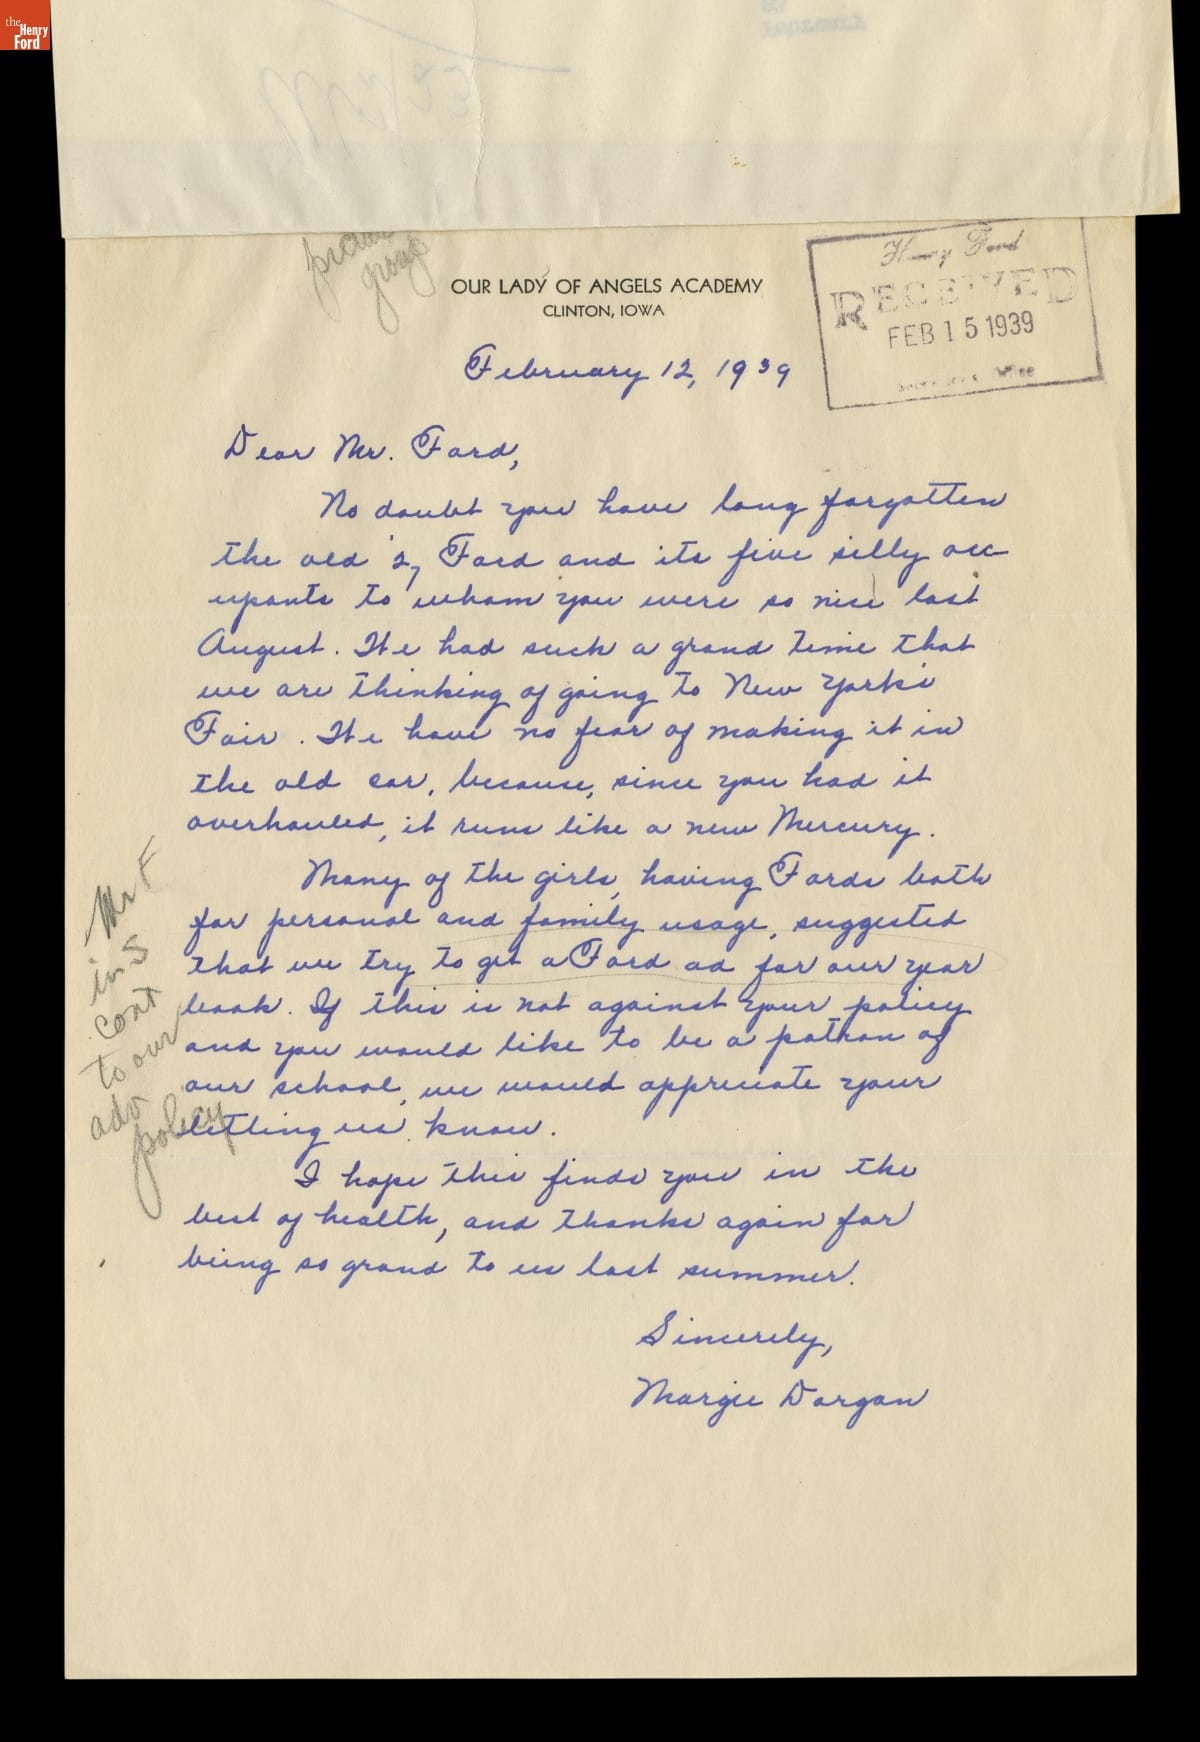 the
Henry
Ford
OUR LADY OF ANGELS ACADEMY
CLINTON, IOWA
Henry Ford
RECEIVED
FEB 15 1939
Office
February 12, 1939
Dear Mr. Ford,
No doubt you have long forgotten
the old '27 Ford and its five silly occ
upants to whom you were so nice last
August. We had such a grand time that
we are thinking of going to New York's
Fair. We have no fear of making it in
the old car, because, since you had it
overhauled, it runs like a new Mercury.
Many of the girls, having Fords both
for personal and family usage, suggested
that we try to get a Ford ad for our year
book. If this is not against your policy
and you would like to be a patron of
our school, we would appreciate your
letting us know.
I hope this finds you in the
best of health, and thanks again for
being so grand to us last summer.
Sincerely,
Margie Dorgan
Mr F
in S
cont
to our
adv
policy